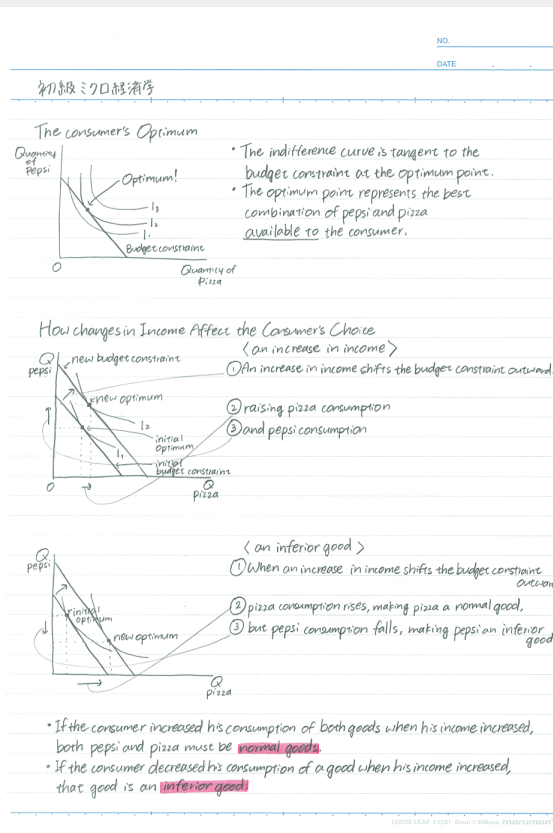 NO.
DATE . .
初級ミクロ経済学
The consumer's Optimum
Quantity
of
Pepsi
Optimum!
I3
I2
I1
Budget constraint
O
Quantity of
Pizza
• The indifference curve is tangent to the
budget constraint at the optimum point.
• The optimum point represents the best
combination of pepsi and pizza
available to the consumer.
How changes in Income Affect the Consumer's Choice
〈an increase in income〉
Q
pepsi
new budget constraint
new optimum
I2
initial
optimum
I1
initial
budget constraint
O
Q
pizza
① An increase in income shifts the budget constraint outward,
② raising pizza consumption
③ and pepsi consumption
〈an inferior good〉
Q
pepsi
initial
optimum
new optimum
Q
pizza
① When an increase in income shifts the budget constraint
② pizza consumption rises, making pizza a normal good,
③ but pepsi consumption falls, making pepsi an inferior
good
• If the consumer increased his consumption of both goods when his income increased,
both pepsi and pizza must be normal goods.
• If the consumer decreased his consumption of a good when his income increased,
that good is an inferior good.
maruman